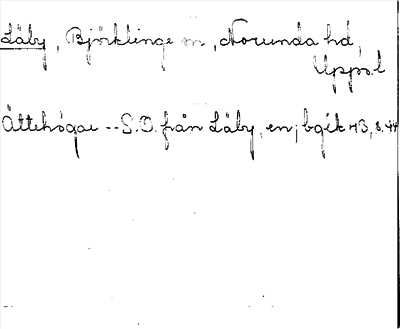 Läby, Björklinge sn, Norunda hd,
Upps. l
Ättehögar -- S.O. från Läby, en; bgek 43, s. 44